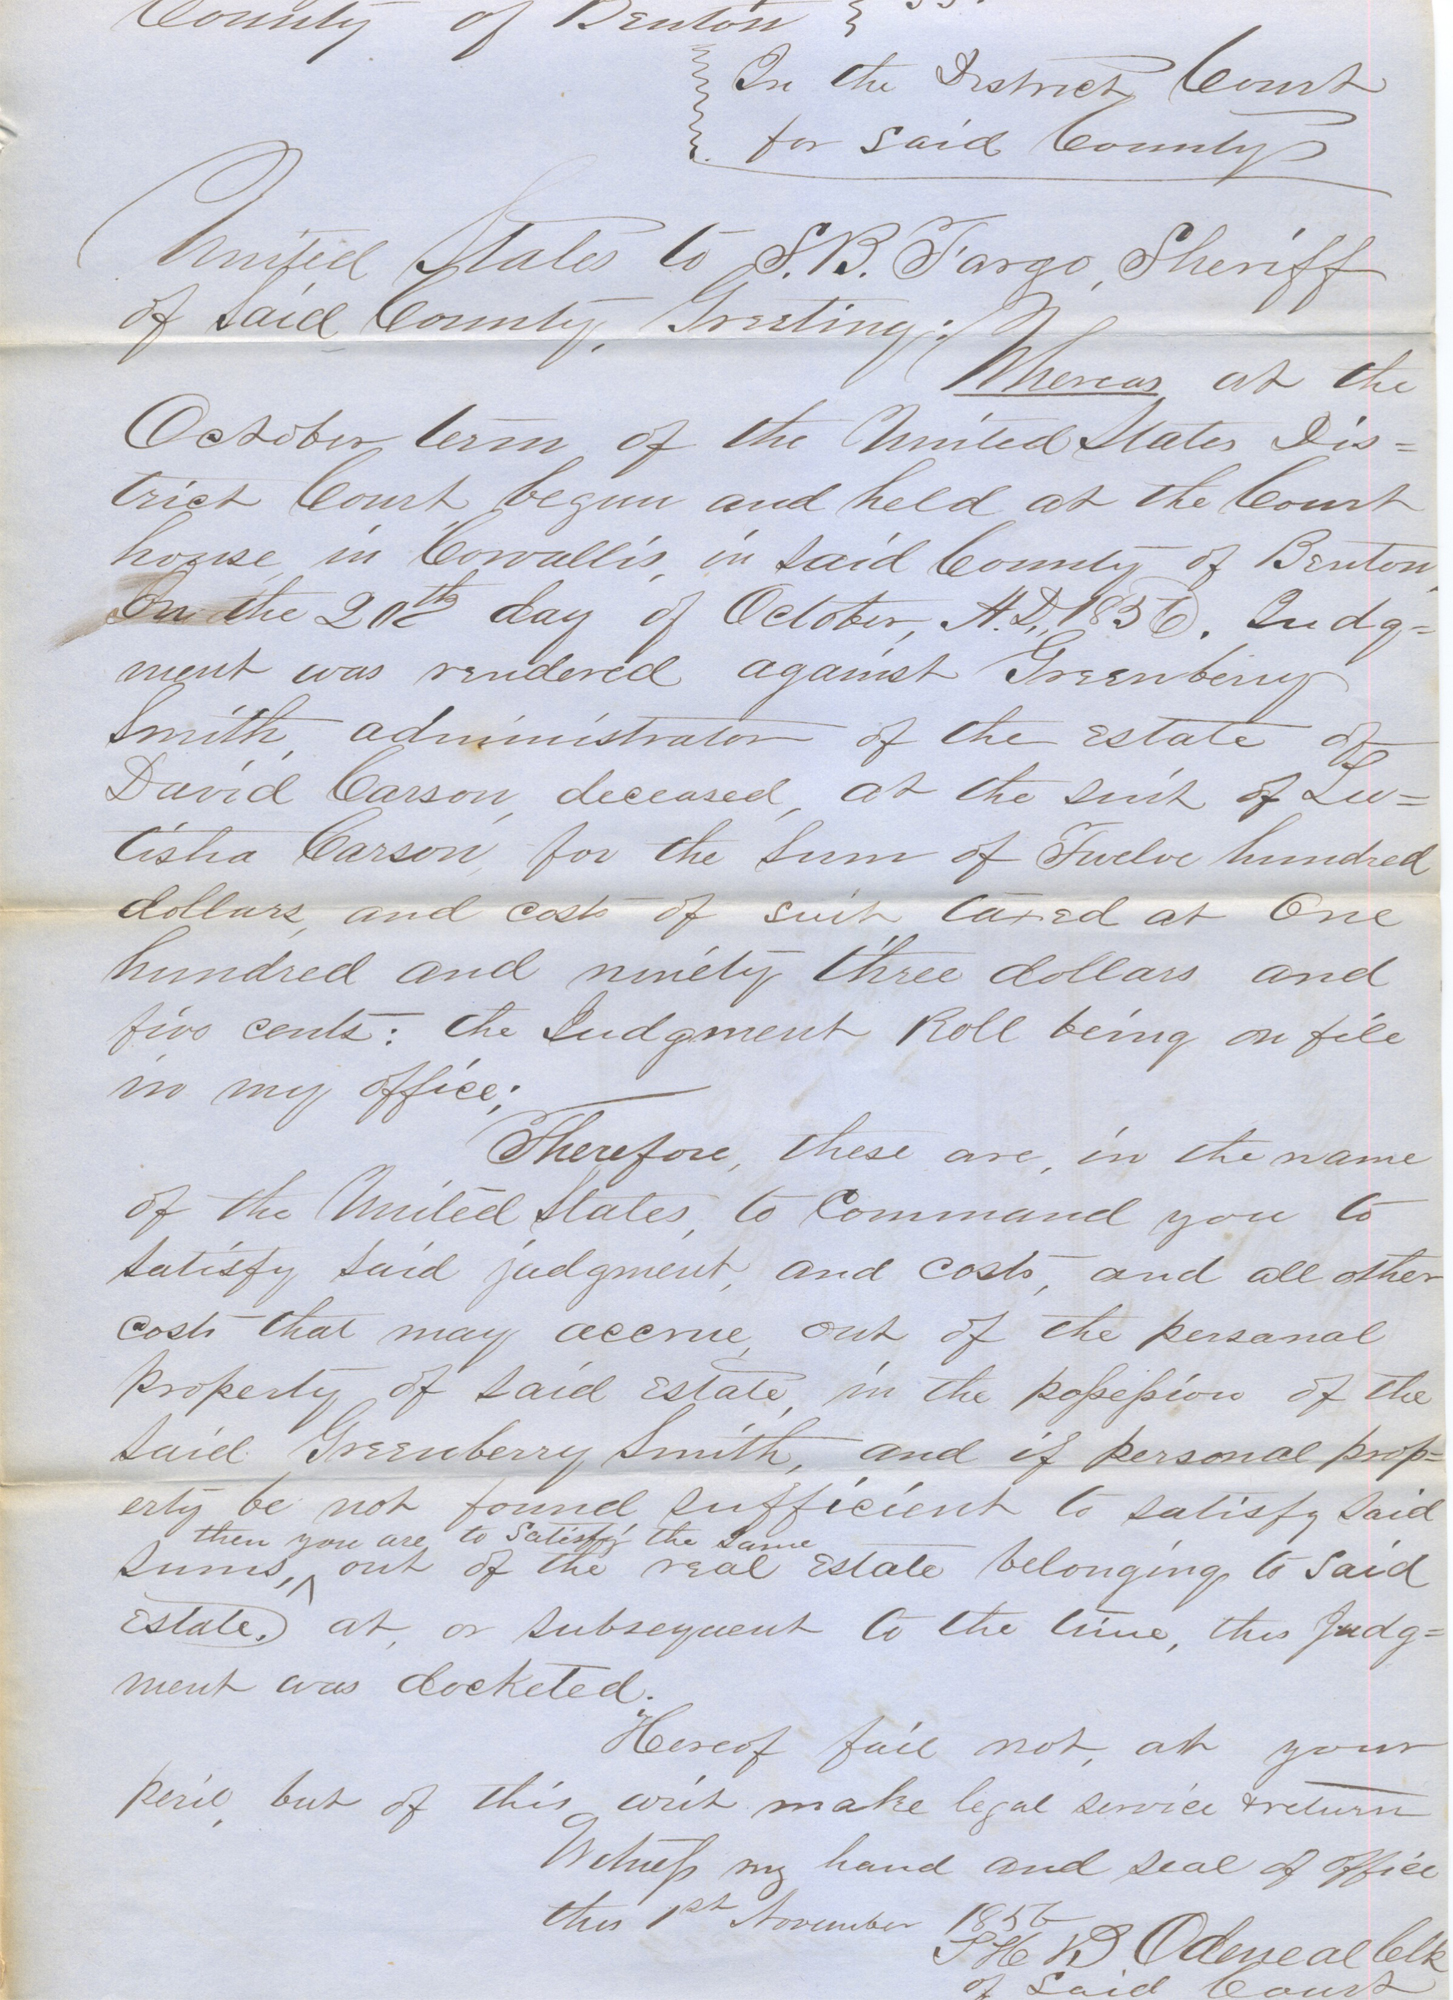 County of Benton } ss.
In the District Court
for said County
United States to S.B. Fargo, Sheriff
of Said County, Greeting:
Whereas at the
October term of the United States Dis=
trict Court begun and held at the Court
house, in Corvallis, in said County of Benton,
On the 20th day of October, A.D., 1856. Judg=
ment was rendered against Greenberry
Smith, administrator of the estate of
David Carson, deceased, at the suit of Le=
tisha Carson, for the sum of Twelve hundred
dollars, and costs of suit taxed at One
hundred and ninety three dollars and
five cents: the Judgment Roll being on file
in my office;
Therefore, these are, in the name
of the United States, to Command you to
satisfy said judgment, and costs, and all other
costs that may accrue, out of the personal
property of said Estate, in the possession of the
said Greenberry Smith, and if personal prop=
erty be not found sufficient to satisfy said
then you are to Satisfy the Same
sums, ^ out of the real Estate belonging to said
Estate. at, or subsequent to the time, this Judg=
ment was docketed.
Hereof fail not, at your
peril, but of this writ make legal service & return
Witness my hand and seal of office
this 1st November 1856
T H B Odeneal Clk
of Said Court